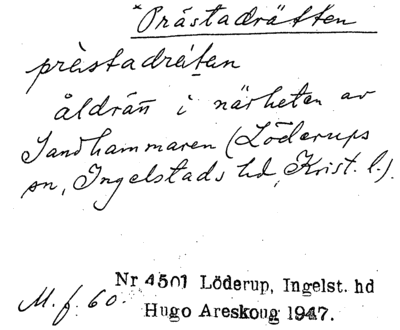 *Prästadrätten
prästadrätan
åldrän i närheten av
Sandhammaren (Löderups
sn, Ingelstads hd, Krist. l.).
Nr 4501 Löderup, Ingelst. hd
M. f. 60. Hugo Areskoug 1947.